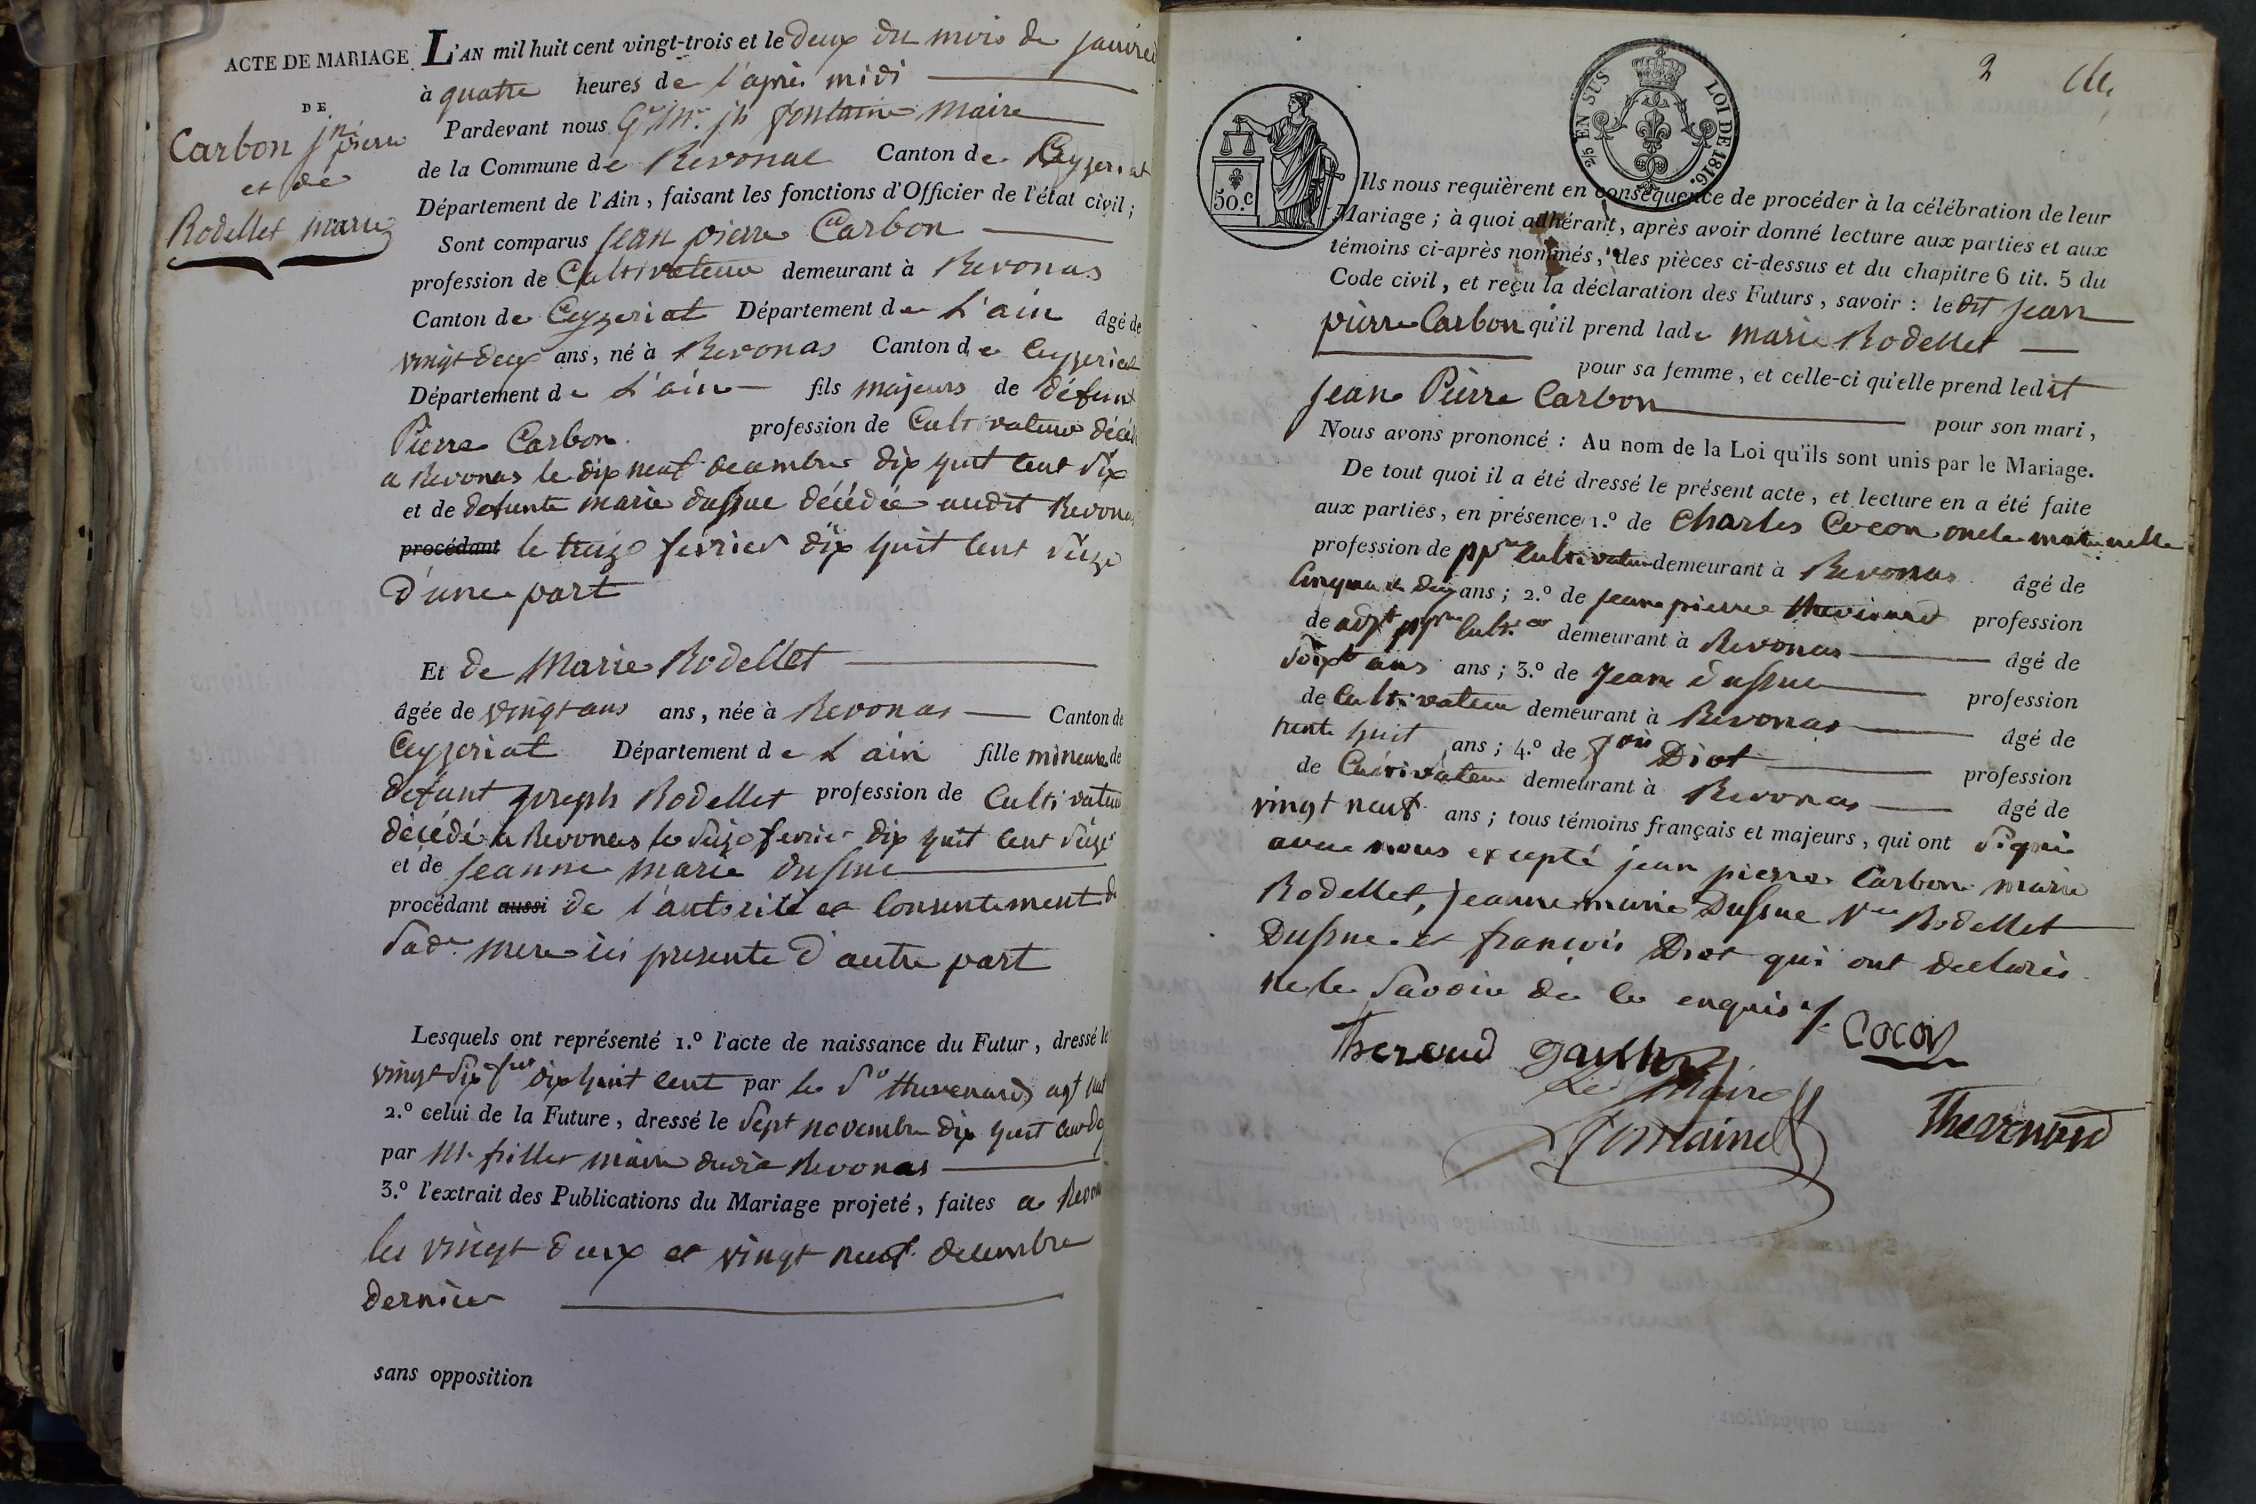 ACTE DE MARIAGE
DE
Carbon jn pierre
et de
Rodellet marie
L'AN mil huit cent vingt-trois et le deux du mois de janvier
à quatre heures de l'après midi
Pardevant nous jh fontaine maire
de la Commune de Revonas Canton de Ceyzeriat
Département de l'Ain, faisant les fonctions d'Officier de l'état civil;
Sont comparus jean pierre Carbon
profession de Cultivateur demeurant à Revonas
Canton de Ceyzeriat Département de L'ain âgé de
vingt deux ans, né à Revonas Canton de Ceyzeriat
Département de L'ain fils majeurs de défunt
Pierre Carbon profession de Cultivateur décédé
a Revonas le dix neuf decembre dix huit cent six
et de defunte marie dussue décédée audit Revonas
procédant le treize fevrier dix huit cent seize
d'une part
Et de Marie Rodellet
âgée de vingt ans ans, née à Revonas Canton de
Ceyzeriat Département de L'ain fille mineure de
defunt joseph Rodellet profession de Cultivateur
décédé a Revonas le seize fevrier dix huit cent seize
et de jeanne marie dussue
procédant aussi de l'autorité et consentement de
sade mere ici presente d'autre part
Lesquels ont représenté 1.º l'acte de naissance du Futur, dressé le
vingt six dix huit cent par le Sr thevenard agt
2.º celui de la Future, dressé le sept novembre dix huit cent
par Mr maire dudit Revonas
3.º l'extrait des Publications du Mariage projeté, faites a Revonas
les vingt deux et vingt neuf decembre
dernier
sans opposition
2
50.c
2/5 EN SUS
LOI DE 1816.
Ils nous requièrent en conséquence de procéder à la célébration de leur
Mariage; à quoi adhérant, après avoir donné lecture aux parties et aux
témoins ci-après nommés, des pièces ci-dessus et du chapitre 6 tit. 5 du
Code civil, et reçu la déclaration des Futurs, savoir: ledit jean
pierre Carbon qu'il prend lade marie Rodellet
pour sa femme, et celle-ci qu'elle prend ledit
jean Pierre Carbon pour son mari,
Nous avons prononcé: Au nom de la Loi qu'ils sont unis par le Mariage.
De tout quoi il a été dressé le présent acte, et lecture en a été faite
aux parties, en présence 1.º de Charles Cocon oncle maternelle
profession de ppre Cultivateur demeurant à Revonas âgé de
Cinquante deux ans; 2.º de jean pierre thevenard profession
de adjt ppre Cultr demeurant à Revonas âgé de
soixte ans ans; 3.º de jean dussue profession
de Cultivateur demeurant à Revonas âgé de
trente huit ans; 4.º de fois Diot profession
de Cultivateur demeurant à Revonas âgé de
vingt neuf ans; tous témoins français et majeurs, qui ont signé
avec nous excepté jean pierre Carbon marie
Rodellet, jeanne marie Dussue Vve Rodellet
Dussue et francois Diot qui ont declarés
ne le savoir de ce enquis
Cocon
Le Maire
fontaine
Thevenard